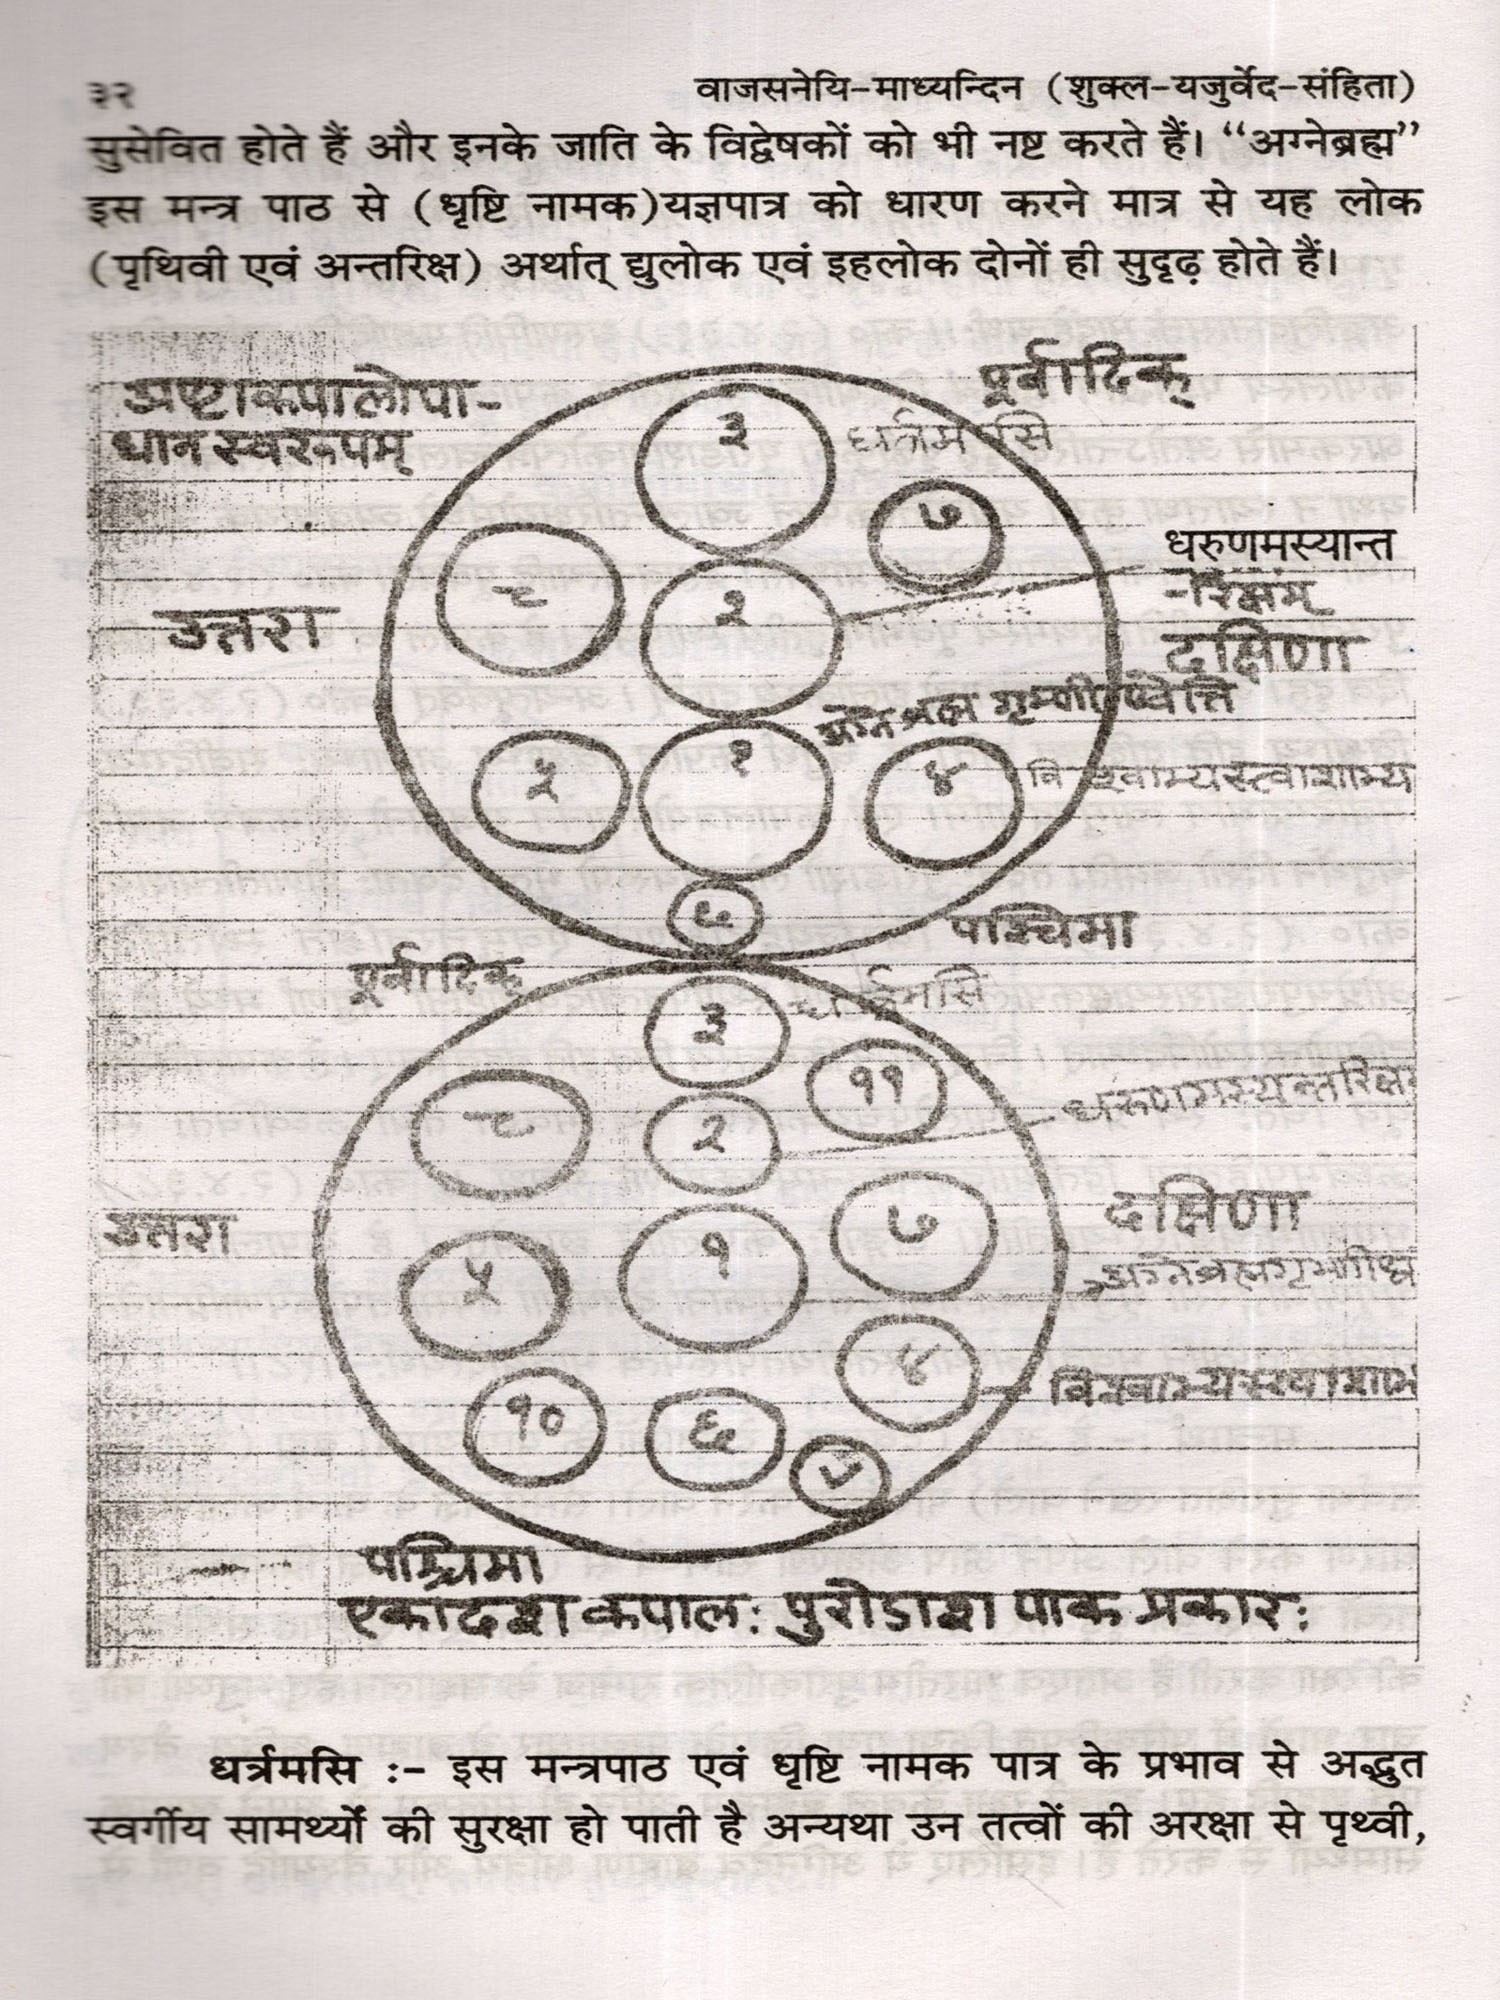 ३२
वाजसनेयि-माध्यन्दिन (शुक्ल-यजुर्वेद-संहिता)
सुसेवित होते हैं और इनके जाति के विद्वेषकों को भी नष्ट करते हैं। “अग्नेब्रह्म”
इस मन्त्र पाठ से (धृष्टि नामक)यज्ञपात्र को धारण करने मात्र से यह लोक
(पृथिवी एवं अन्तरिक्ष) अर्थात् द्युलोक एवं इहलोक दोनों ही सुदृढ़ होते हैं।
अष्टाकपालोपा-
धानस्वरूपम्
पूर्वादिक्
३
धर्त्रमसि
७
धरुणमस्यान्त
-रिक्षम्
८
२
उत्तरा
दक्षिणा
अग्नेब्रह्म गृभ्णीष्वेति
५
१
४
विश्वाभ्यस्त्वाशाभ्य
६
पश्चिमा
पूर्वादिक्
३
धर्त्रमसि
११
८
२
धरुणमस्यन्तरिक्षम
७
दक्षिणा
उत्तरा
५
१
अग्नेब्रह्मगृभ्णीष्व
४
१०
६
पश्चिमा
एकादश कपाल: पुरोडाश पाक प्रकार:
धर्त्रमसि :- इस मन्त्रपाठ एवं धृष्टि नामक पात्र के प्रभाव से अद्भुत
स्वर्गीय सामर्थ्यों की सुरक्षा हो पाती है अन्यथा उन तत्वों की अरक्षा से पृथ्वी,